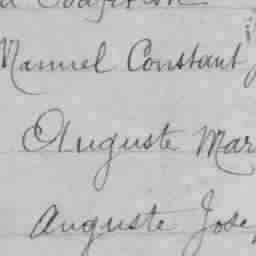 Manuel Constant
Auguste Mar
Auguste Jose